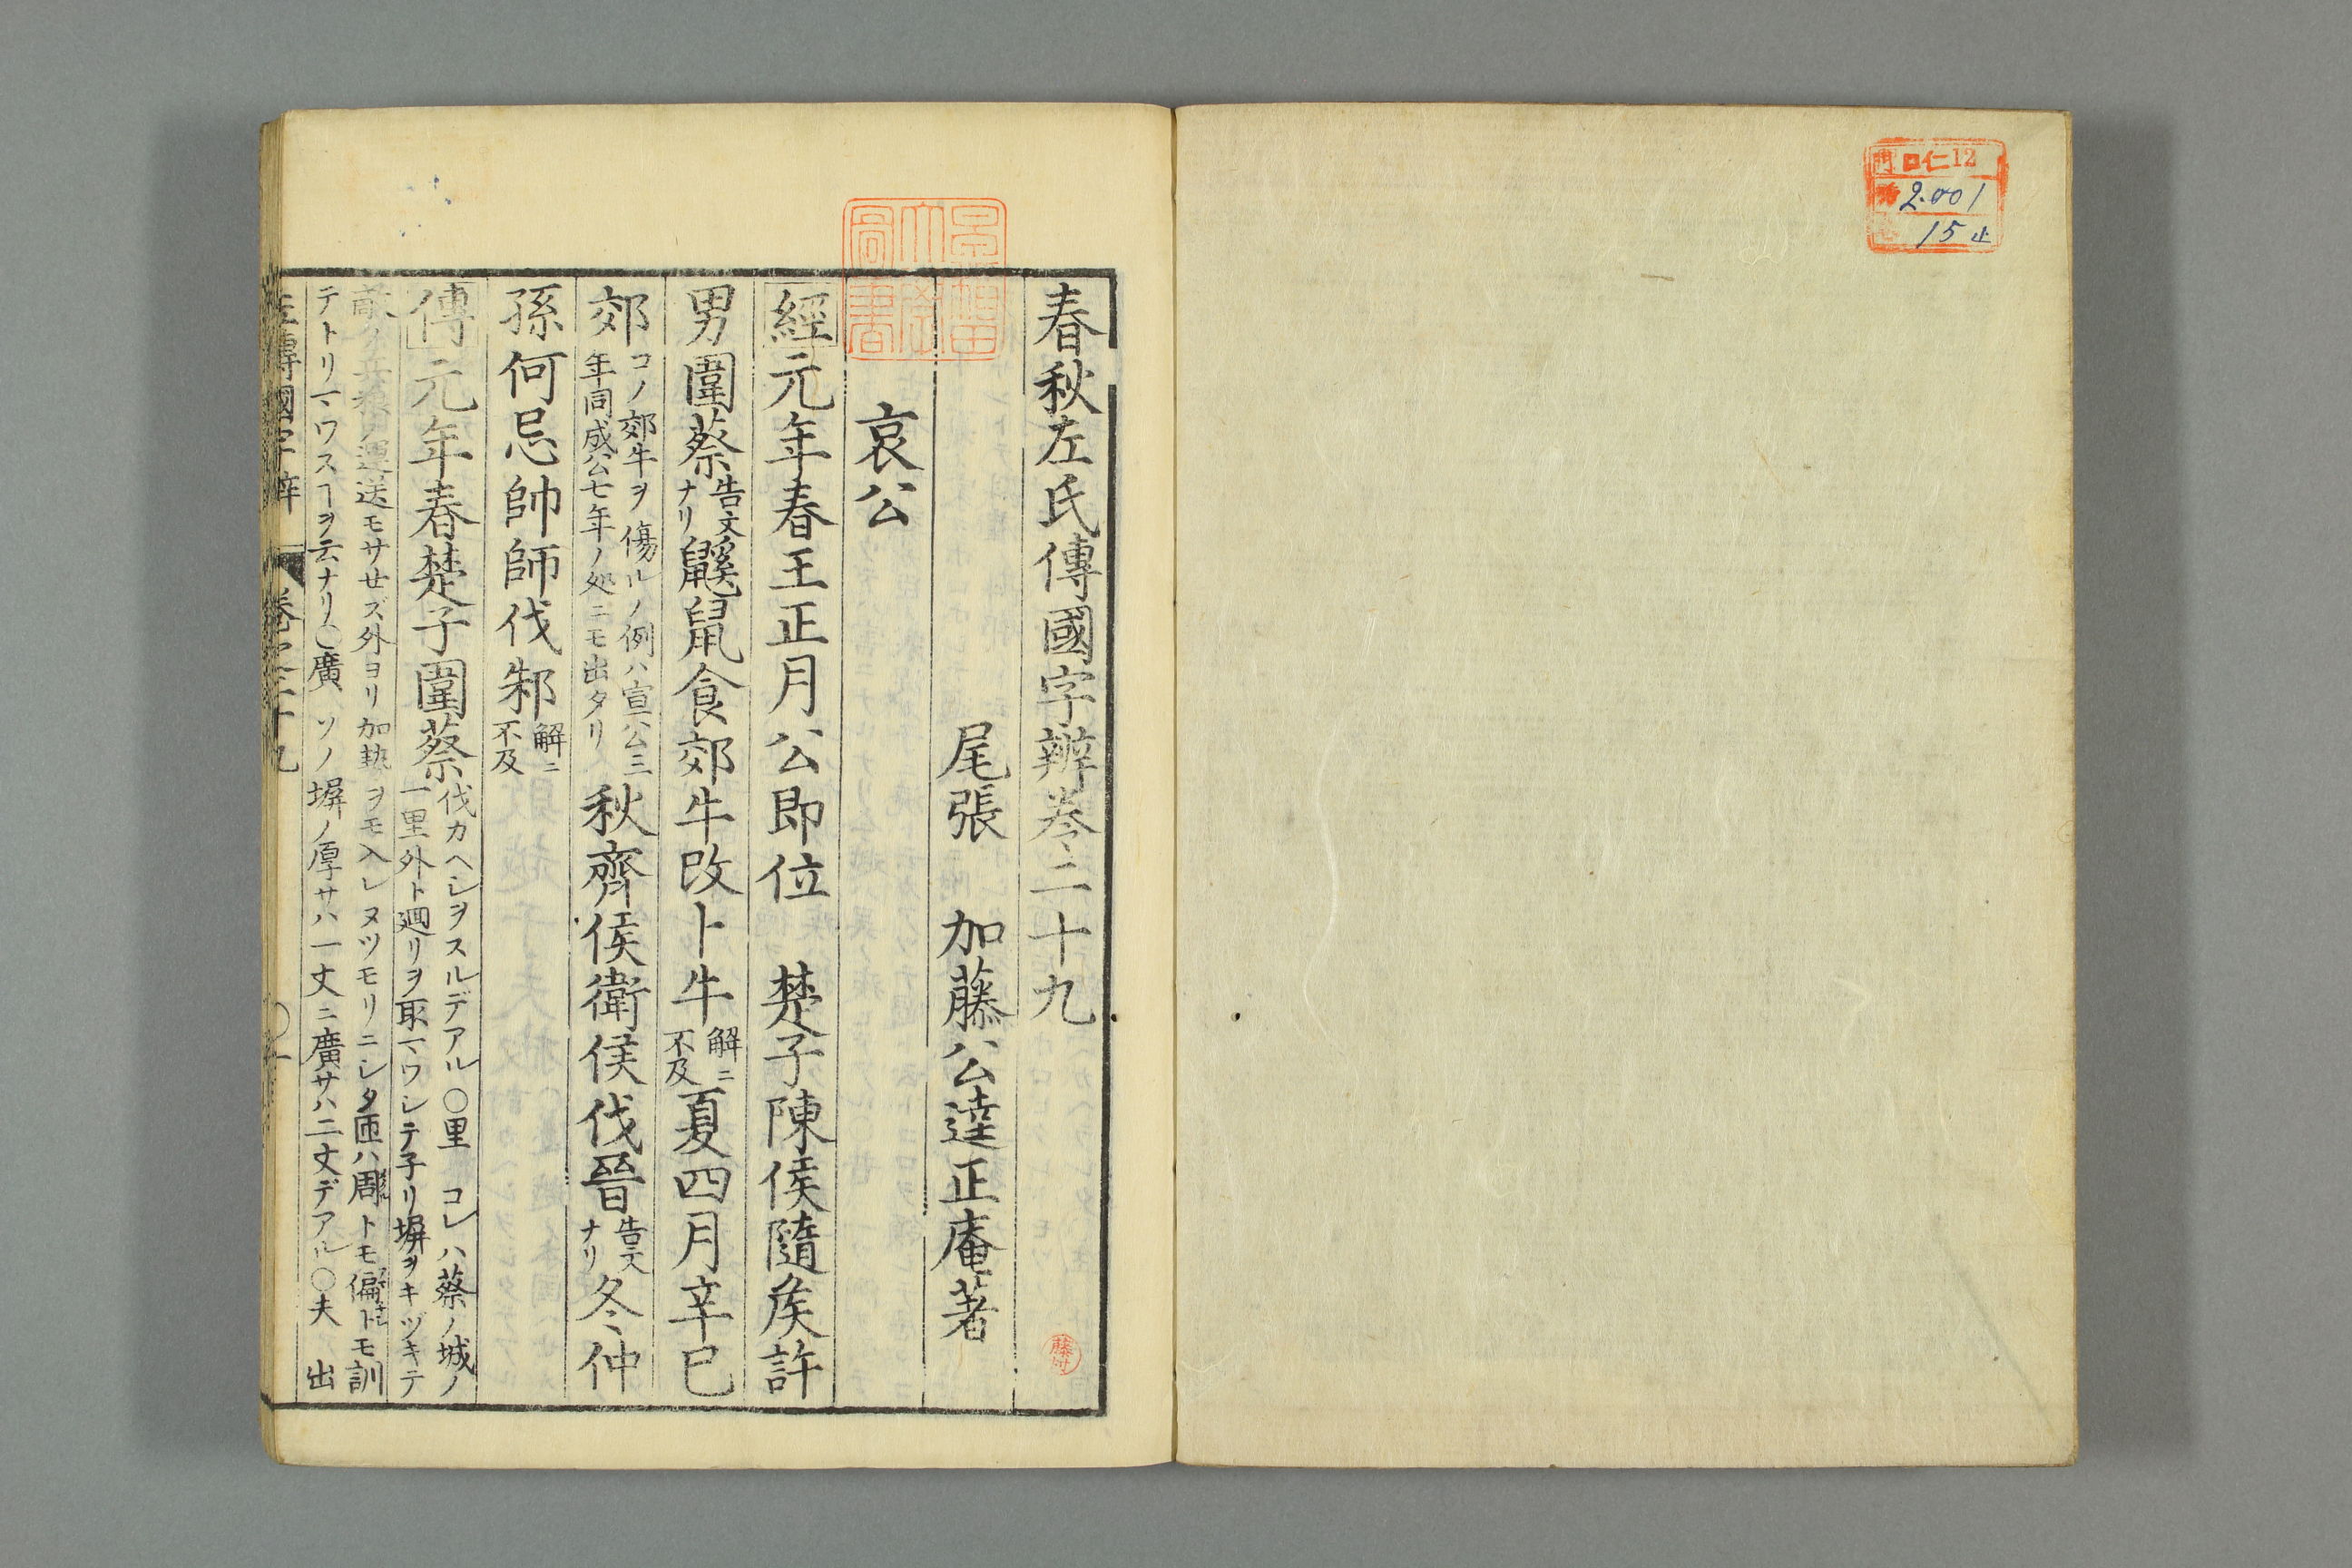 門 口仁12
2.001
15止
春秋左氏傳國字辨巻二十九
尾張 加藤公逵正庵著
哀公
經元年春王正月公即位 楚子陳侯隨矦許
男圍蔡告文ナリ鼷鼠食郊牛改卜牛解ニ不及夏四月辛巳
郊コノ郊牛ヲ傷ルノ例ハ宣公三年同成公七年ノ処ニモ出タリ秋齊侯衛侯伐晉告文ナリ冬仲
孫何忌帥師伐邾解ニ不及
傳元年春楚子圍蔡伐カヘシヲスルデアル〇里 コレハ蔡ノ城ノ
一里外ト廻リヲ取マワシテ子リ塀ヲキヅキテ
運送モサセズ外ヨリ加勢ヲモ入レヌツモリニシタ匝ハ周トモ偏トモ訓
テトリマワスヿヲ云ナリ〇廣 ソノ塀ノ厚サハ一丈ニ廣サハ二丈デアル〇夫 出
左傳國字辨 巻之二十九 〇一